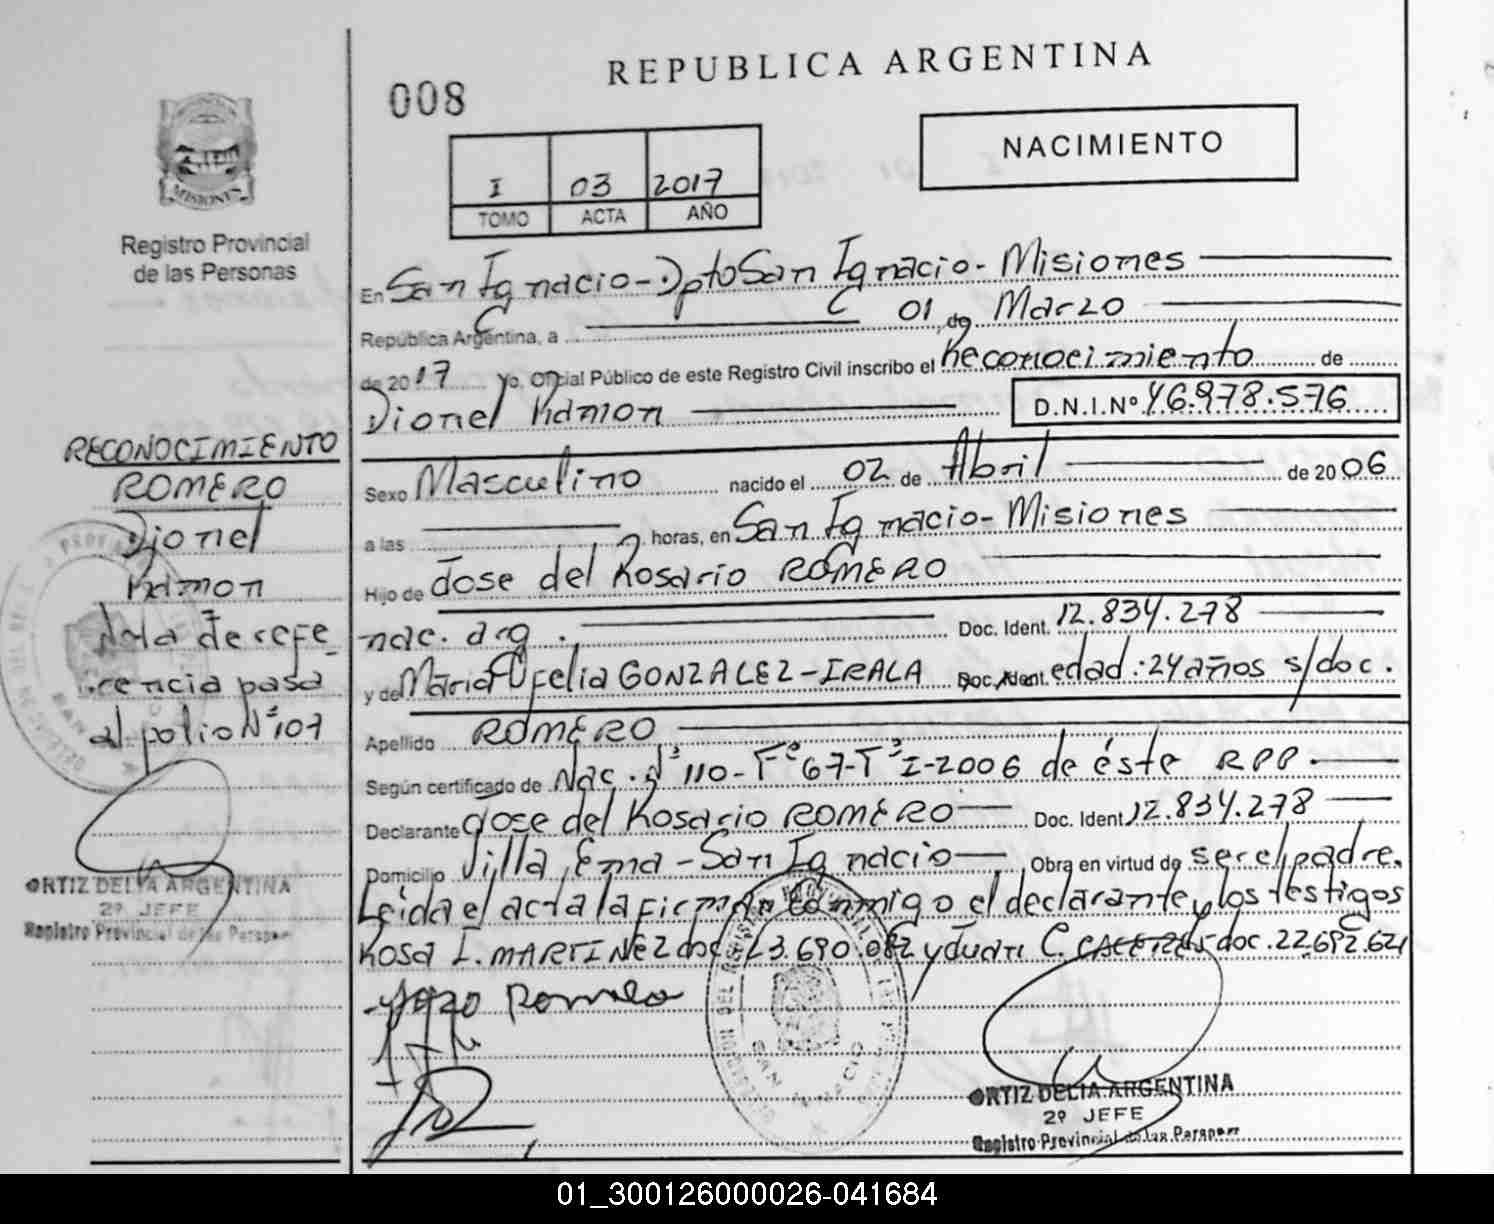 REPUBLICA ARGENTINA
008
NACIMIENTO
I 03 2017
TOMO ACTA AÑO
MISIONES
Registro Provincial
de las Personas
En San Ignacio - Dpto San Ignacio - Misiones
República Argentina, a 01 de Marzo
de 2017 Yo, Oficial Público de este Registro Civil inscribo el Reconocimiento de
Dionel Ramon D.N.I.Nº 46.978.576
Sexo Masculino nacido el 02 de Abril de 2006
a las horas, en San Ignacio - Misiones
Hijo de Jose del Rosario ROMERO
nac. arg. Doc. Ident. 12.834.278
y de Maria Ofelia GONZALEZ-IRALA Doc. Ident. edad: 24 años s/doc.
Apellido ROMERO
Según certificado de Nac. Nº 110 - Fº 67 - Tº I - 2006 de éste RPP.
Declarante Jose del Rosario ROMERO Doc. Ident. 12.834.278
Domicilio Villa Ema - San Ignacio Obra en virtud de ser el padre.
Leida el acta la firman conmigo el declarante y los testigos
Rosa I. MARTINEZ doc. 23.690.082 y Juan C. doc. 22.692.621
Romero
ORTIZ DELIA ARGENTINA
2º JEFE
Registro Provincial de las Personas
RECONOCIMIENTO
ROMERO
Dionel
Ramon
Nota de refe
rencia pasa
al folio Nº 107
ORTIZ DELIA ARGENTINA
2º JEFE
Registro Provincial de las Personas
SAN IGNACIO
01_300126000026-041684